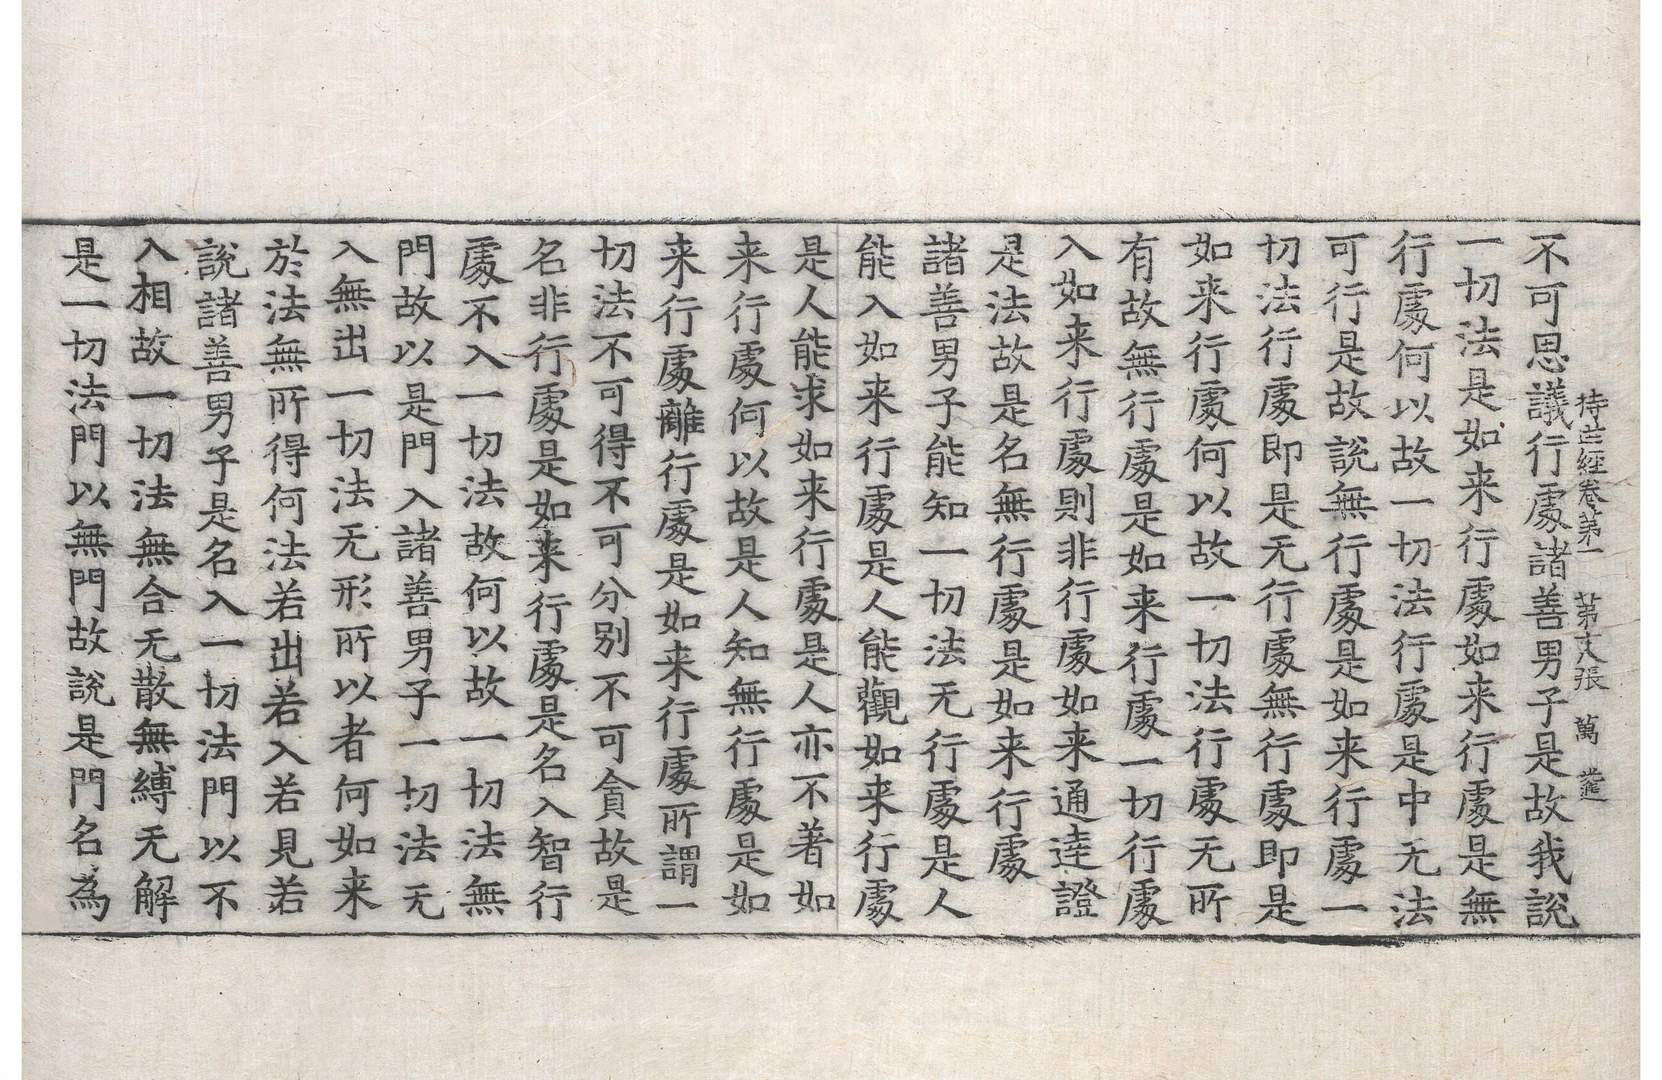 持世經卷第一 第十八張 萬
不可思議行處諸善男子是故我說
一切法是如来行處如来行處是無
行處何以故一切法行處是中无法
可行是故說無行處是如来行處一
切法行處即是无行處無行處即是
如来行處何以故一切法行處无所
有故無行處是如来行處一切行處
入如来行處則非行處如来通達證
是法故是名無行處是如来行處
諸善男子能知一切法无行處是人
能入如来行處是人能觀如来行處
是人能求如来行處是人亦不著如
来行處何以故是人知無行處是如
来行處離行處是如来行處所謂一
切法不可得不可分别不可貪故是
名非行處是如来行處是名入智行
處不入一切法故何以故一切法無
門故以是門入諸善男子一切法无
入無出一切法无形所以者何如来
於法無所得何法若出若入若見若
說諸善男子是名入一切法門以不
入相故一切法無合无散無縛无解
是一切法門以無門故說是門名為